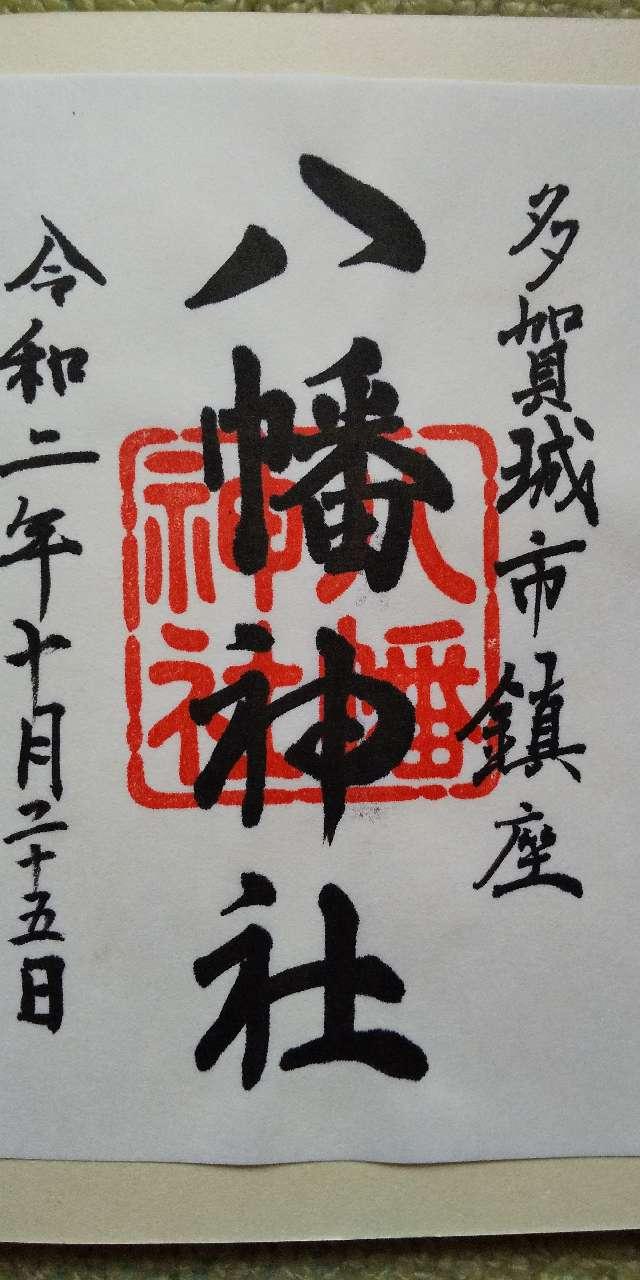 多賀城市鎮座
八幡神社
八幡神社
令和二年十月二十五日